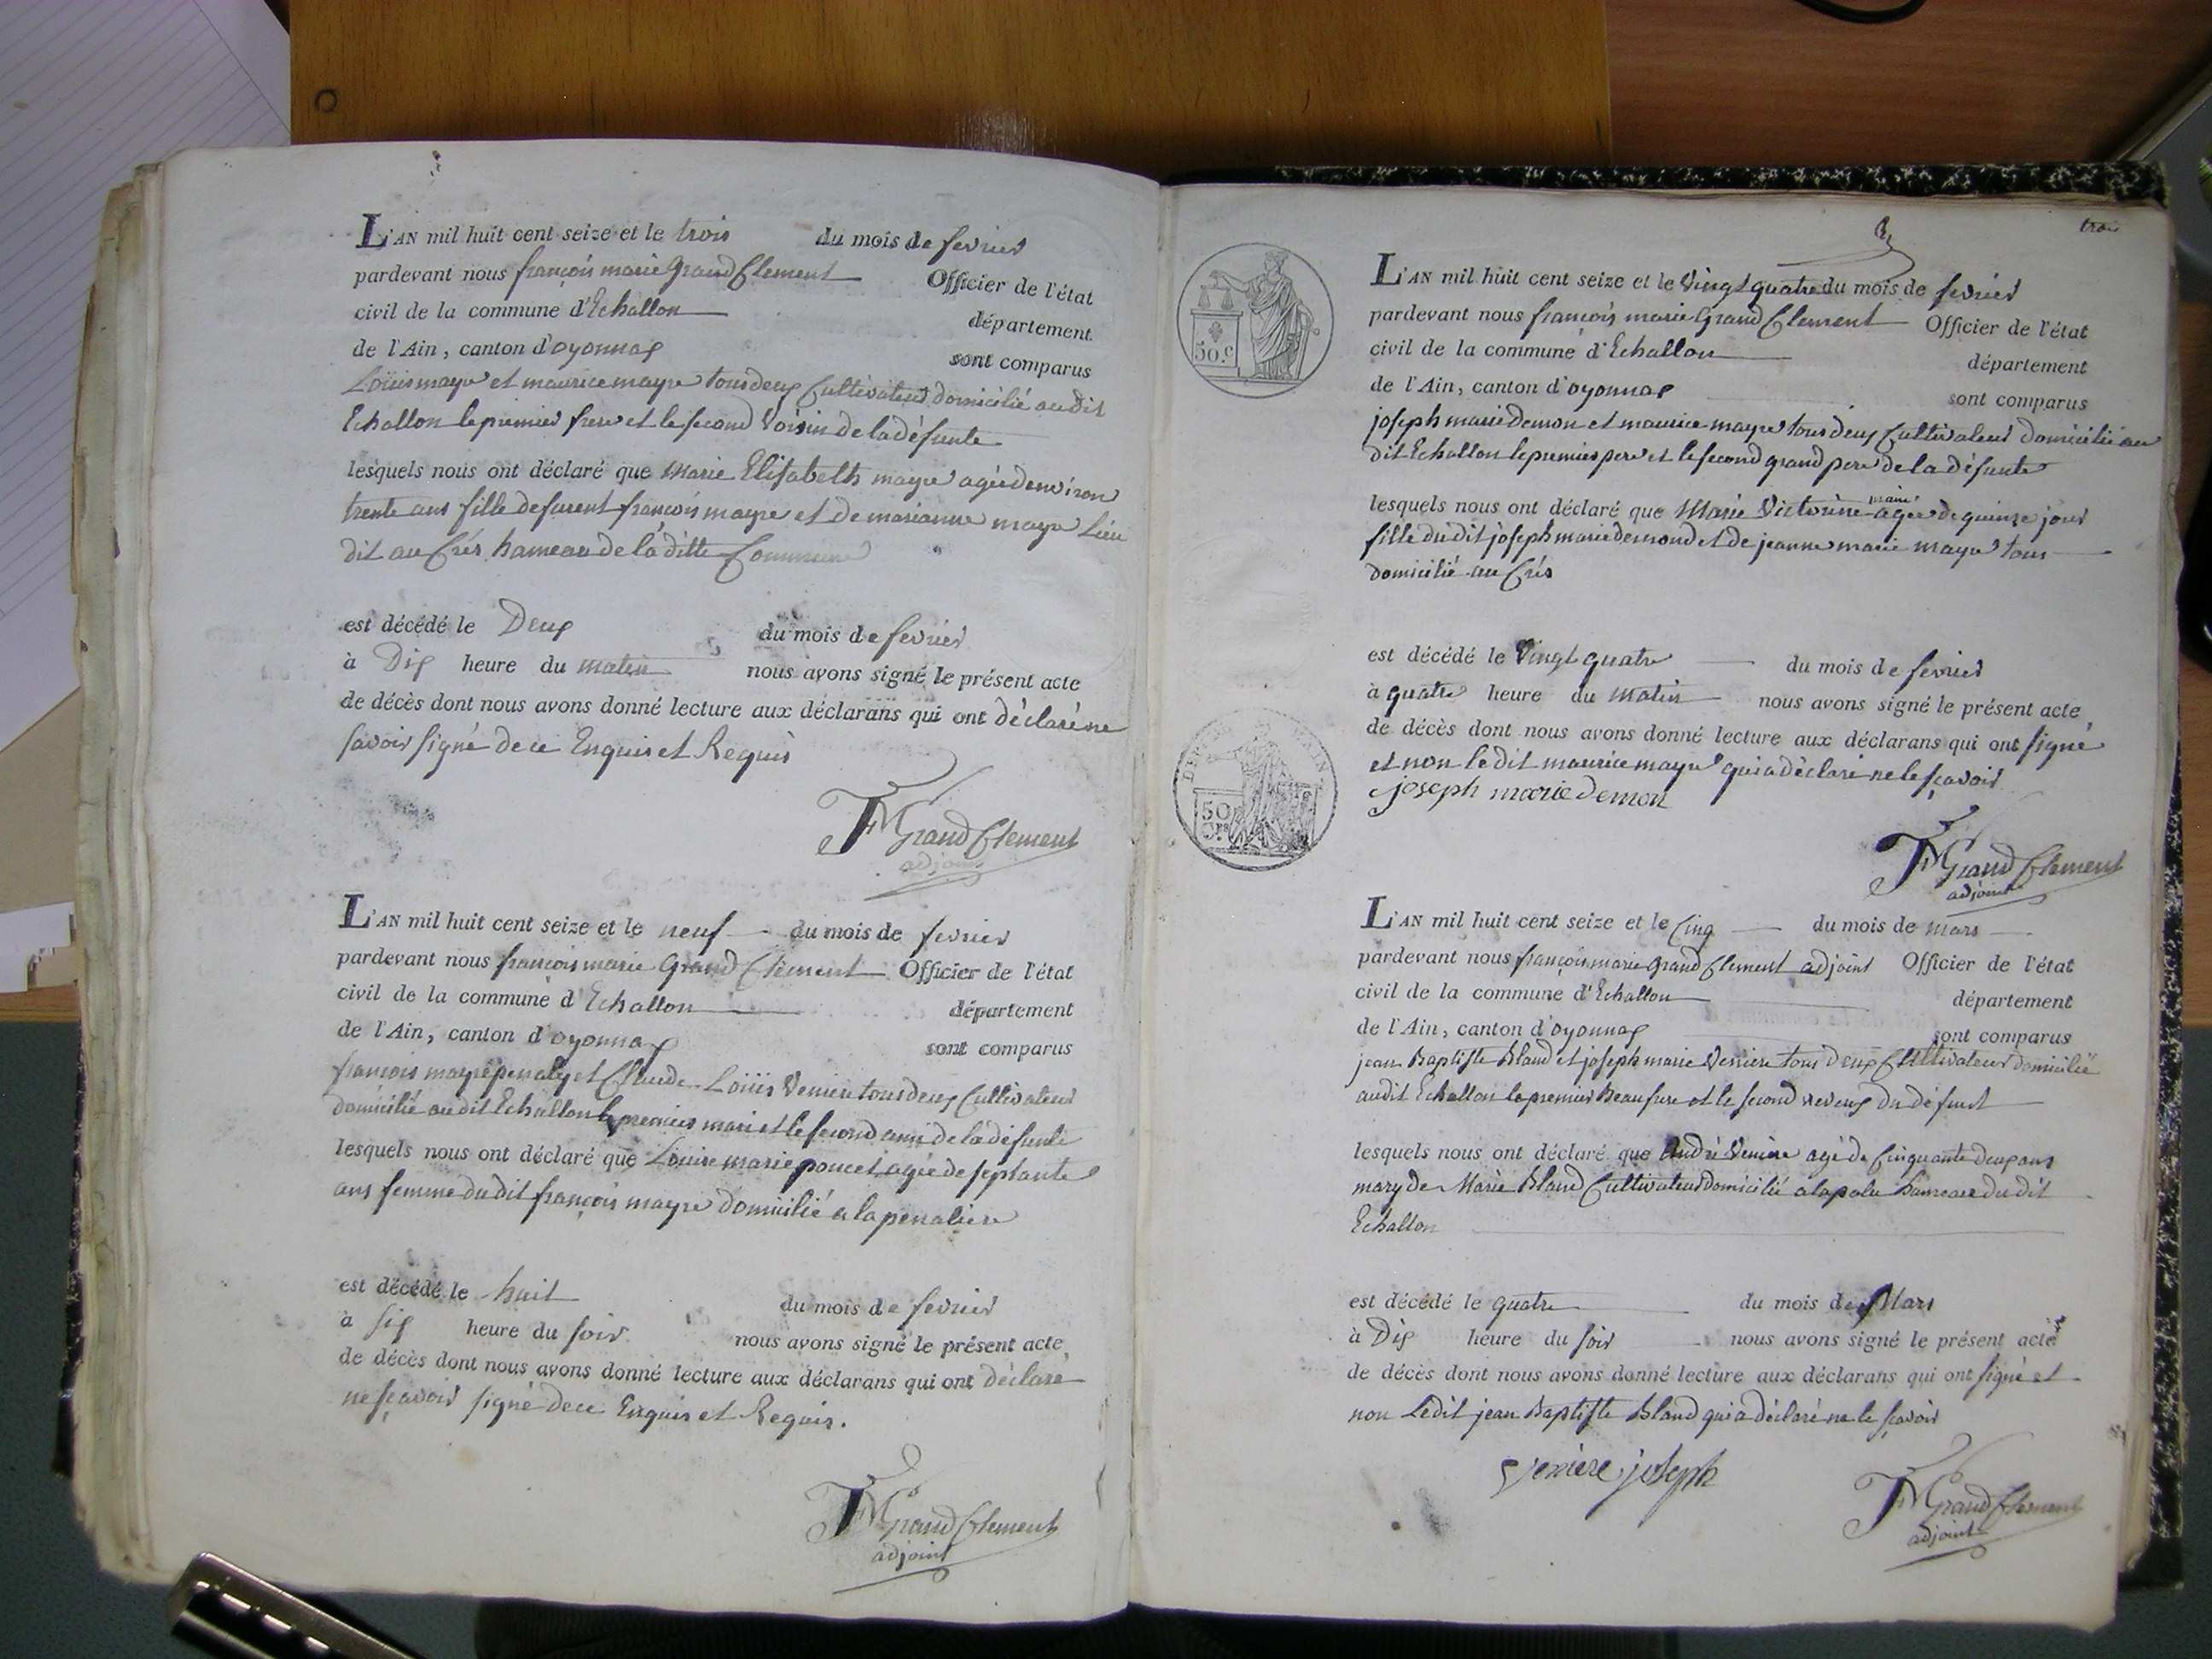 L'AN mil huit cent seize et le trois du mois de fevrier
pardevant nous françois marie Grand Clement Officier de l'état
civil de la commune d'Echallon département
de l'Ain, canton d'oyonnax sont comparus
Loüis mayre et maurice mayre tous deux Cultivateurs domicilié audit
Echallon le premier frere et le second Voisin de la défunte
lesquels nous ont déclaré que Marie Elisabeth mayre agée denviron
trente ans fille de furent françois mayre et de marianne mayre Lieu
dit au Crés hameau de la ditte Commune
est décédé le Deux du mois de fevrier
à Dix heure du matin nous avons signé le présent acte
de décès dont nous avons donné lecture aux déclarans qui ont déclaré ne
savoir signé de ce Enquis et Requis
FM Grand Clement
adjoint
L'AN mil huit cent seize et le neuf du mois de fevrier
pardevant nous francois marie Grand Clement Officier de l'état
civil de la commune d'Echallon département
de l'Ain, canton d'oyonnax sont comparus
francois mayre et Claude Loüis Veniere tous deux Cultivateur
domicilié audit Echallon le premier mari et le second ami de la défunte
lesquels nous ont déclaré que Louise marie poncet agée de septante
ans femme du dit françois mayre domicilié a la penaliere
est décédé le huit du mois de fevrier
à six heure du soir nous avons signé le présent acte,
de décès dont nous avons donné lecture aux déclarans qui ont déclaré
ne sçavoir signé de ce Enquis et Requis.
FM Grand Clement
adjoint
trois
50.c
L'AN mil huit cent seize et le Vingt quatre du mois de fevrier
pardevant nous françois marie Grand Clement Officier de l'état
civil de la commune d'Echallon département
de l'Ain, canton d'oyonnax sont comparus
joseph marie Demon et maurice mayre tous deux Cultivateur domicilié au
dit Echallon le premier pere et le second grand pere de la défunte
lesquels nous ont déclaré que Marie Victorine agée de quinze jour
fille du dit joseph marie demond et de jeanne marie mayre tous
domicilié au Crés
est décédé le Vingt quatre du mois de fevrier
à quatre heure du matin nous avons signé le présent acte,
de décès dont nous avons donné lecture aux déclarans qui ont signé
et non le dit maurice mayre qui a déclaré ne le sçavoir
joseph marie demon
50
FM Grand Clement
adjoint
L'AN mil huit cent seize et le Cinq du mois de mars
pardevant nous françois marie Grand Clement adjoint Officier de l'état
civil de la commune d'Echallon département
de l'Ain, canton d'oyonnax sont comparus
jean Baptiste Bland et joseph marie Veniere tous Deux Cultivateur domicilié
audit Echallon le premier Beau frere et le second neveux du défunt
lesquels nous ont déclaré que André Veniere agé de Cinquante deux ans
mary de Marie Bland Cultivateur domicilié a la palu hameau du dit
Echallon
est décédé le quatre du mois de Mars
à Dix heure du soir nous avons signé le présent acte
de décès dont nous avons donné lecture aux déclarans qui ont signé et
non Ledit jean Baptiste Bland qui a déclaré ne le sçavoir
veniere joseph
FM Grand Clement
adjoint